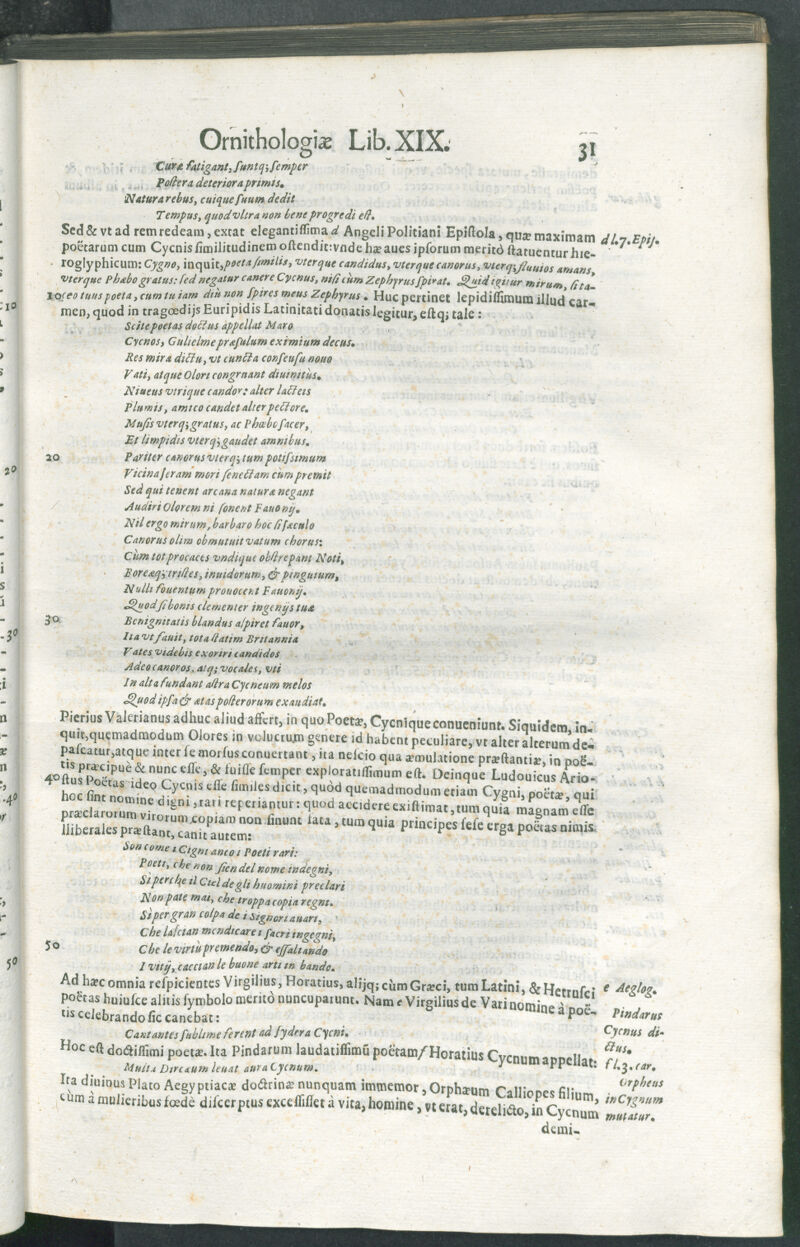 Ornithologiæ Lib. XIX. 31
Curæ fatigant, suntq; semper
Postera deteriora primis.
Natura rebus, cuique suum dedit
Tempus, quod vltra non bene progredi est.
Sed & vt ad rem redeam, extat elegantissima d Angeli Politiani Epistola, quæ maximam d l.7. Epis.
poëtarum cum Cycnis similitudinem ostendit: vnde hæ aues ipsorum meritò statuentur hie-
roglyphicum: Cygno, inquit, poeta similis, vterque candidus, vterque canorus, vterq; fluuios amans,
vterque Phæbo gratus: sed negatur canere Cycnus, nisi cùm Zephyrus spirat. Quid igitur mirum, si ta-
10 ceo tuus poeta, cum tu iam diu non spires meus Zephyrus. Huc pertinet lepidissimum illud car-
men, quod in tragœdijs Euripidis Latinitati donatis legitur, estq; tale:
Scite poetas doctus appellat Maro
Cycnos, Gulielme præsulum eximium decus.
Res mira dictu, vt cuncta consensu nouo
Vati, atque Olori congruant diuinitùs.
Niueus vtrique candor: alter lacteis
Plumis, amico candet alter pectore.
Musis vterq; gratus, ac Phœbo sacer,
Et limpidis vterq; gaudet amnibus.
20 Pariter canorus vterq; tum potissimum
Vicina seram mori senectam cùm premit
Sed qui tenent arcana naturæ negant
Audiri Olorem ni sonent Fauonij.
Nil ergo mirum, barbaro hoc si sæculo
Canorus olim obmutuit vatum chorus:
Cùm tot procaces vndique obstrepant Noti,
Boreæq; tristes, inuidorum, & pinguium,
Nulli fouentum prouocent Fauonij.
Quod si bonis clementer ingenijs tuæ
30 Benignitatis blandus aspiret fauor,
Ita vt fauit, tota statim Britannia
Vates videbis exoriri candidos
Adeo canoros, atq; vocales, vti
In alta fundant astra Cycneum melos
Quod ipsa & ætas posterorum exaudiat.
Pierius Valerianus adhuc aliud affert, in quo Poetæ, Cycnique conueniunt. Siquidem, in-
quit, quemadmodum Olores in volucrum genere id habent peculiare, vt alter alterum de-
pascatur, atque inter se morsus conuertant, ita nescio qua æmulatione præstantiæ, in poë-
tis præcipuè & nunc esse, & fuisse semper exploratissimum est. Deinque Ludouicus Ario-
40 stus Poëtas ideo Cycnis esse similes dicit, quòd quemadmodum etiam Cygni, poëtæ, qui
hoc sint nomine digni, rari reperiantur: quod accidere existimat, tum quia magnam esse
præclarorum virorum copiam non sinunt fata, tum quia principes sese erga poëtas nimis
illiberales præstant, canit autem:
Son come i Cigni anco i Poeti rari:
Poeti, che non sien del nome indegni,
Sì perche il Ciel de gli huomini preclari
Non pate mai, che troppa copia regni.
Sì per gran colpa de i Signori auari,
Che lascian mendicare i sacri ingegni,
50 Che le virtù premendo, & essaltando
I vitij, caccian le buone arti in bando.
Ad hæc omnia respicientes Virgilius, Horatius, alijq; cùm Græci, tum Latini, & Hetrusci e Aeglog.
poëtas huiusce alitis symbolo meritò nuncuparunt. Nam e Virgilius de Vari nomine à poë-
tis celebrando sic canebat: Pindarus
Cantantes sublime ferent ad sydera Cycni. Cycnus di-
Hoc est doctissimi poetæ. Ita Pindarum laudatissimū poëtam f Horatius Cycnum appellat: ctus.
Multa Dircæum leuat aura Cycnum. f l.3. car.
Ita diuinus Plato Aegyptiacæ doctrinæ nunquam immemor, Orphæum Calliopes filium, Orpheus
cùm à mulieribus fœdè discerptus excessisset à vita, homine, vt erat, derelicto, in Cycnum in Cygnum
mutatur.
demi-